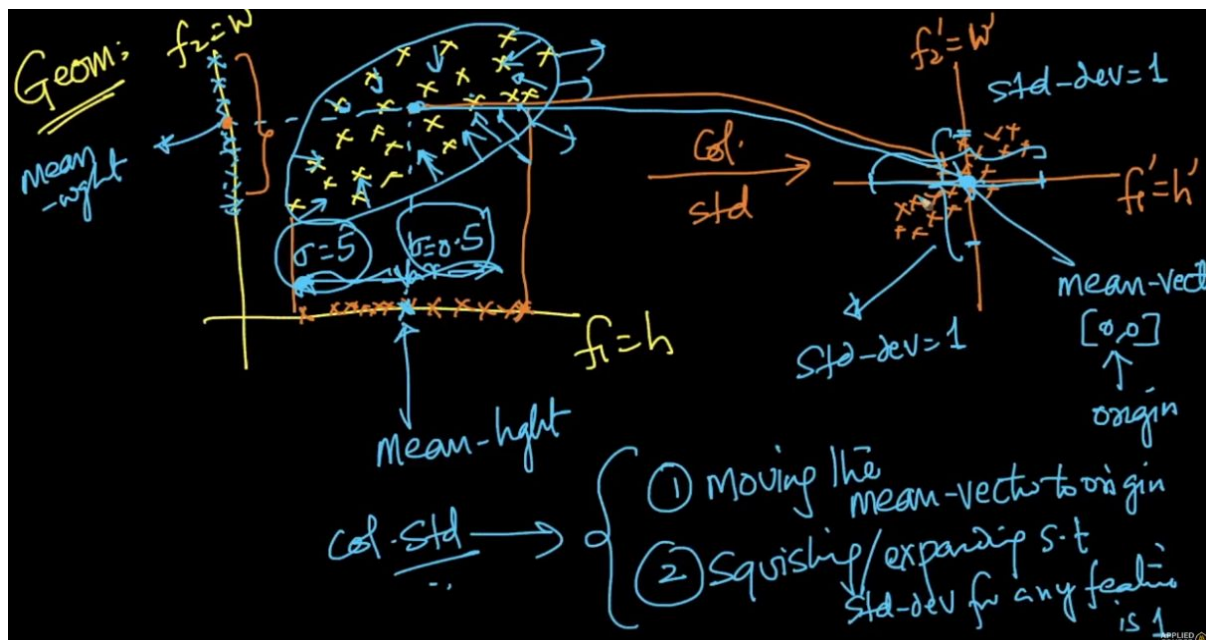 Geom:
f₂=W
mean
-wght
σ=5
σ=0.5
f₁=h
mean-hght
Col.
std
f₂'=W'
std-dev=1
f₁'=h'
mean-vect
[0,0]
origin
Std-dev=1
Col.Std
① Moving the
mean-vector to origin
② Squishing/expanding s.t
std-dev for any feature
is 1
APPLIED